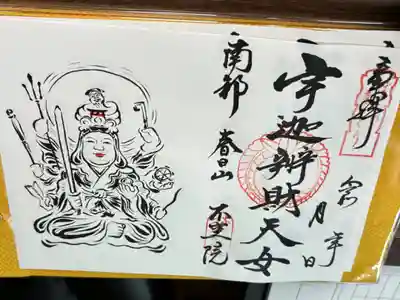 奉拝
令和 年 月 日
宇迦辨財天女
南都
春日山
不空院